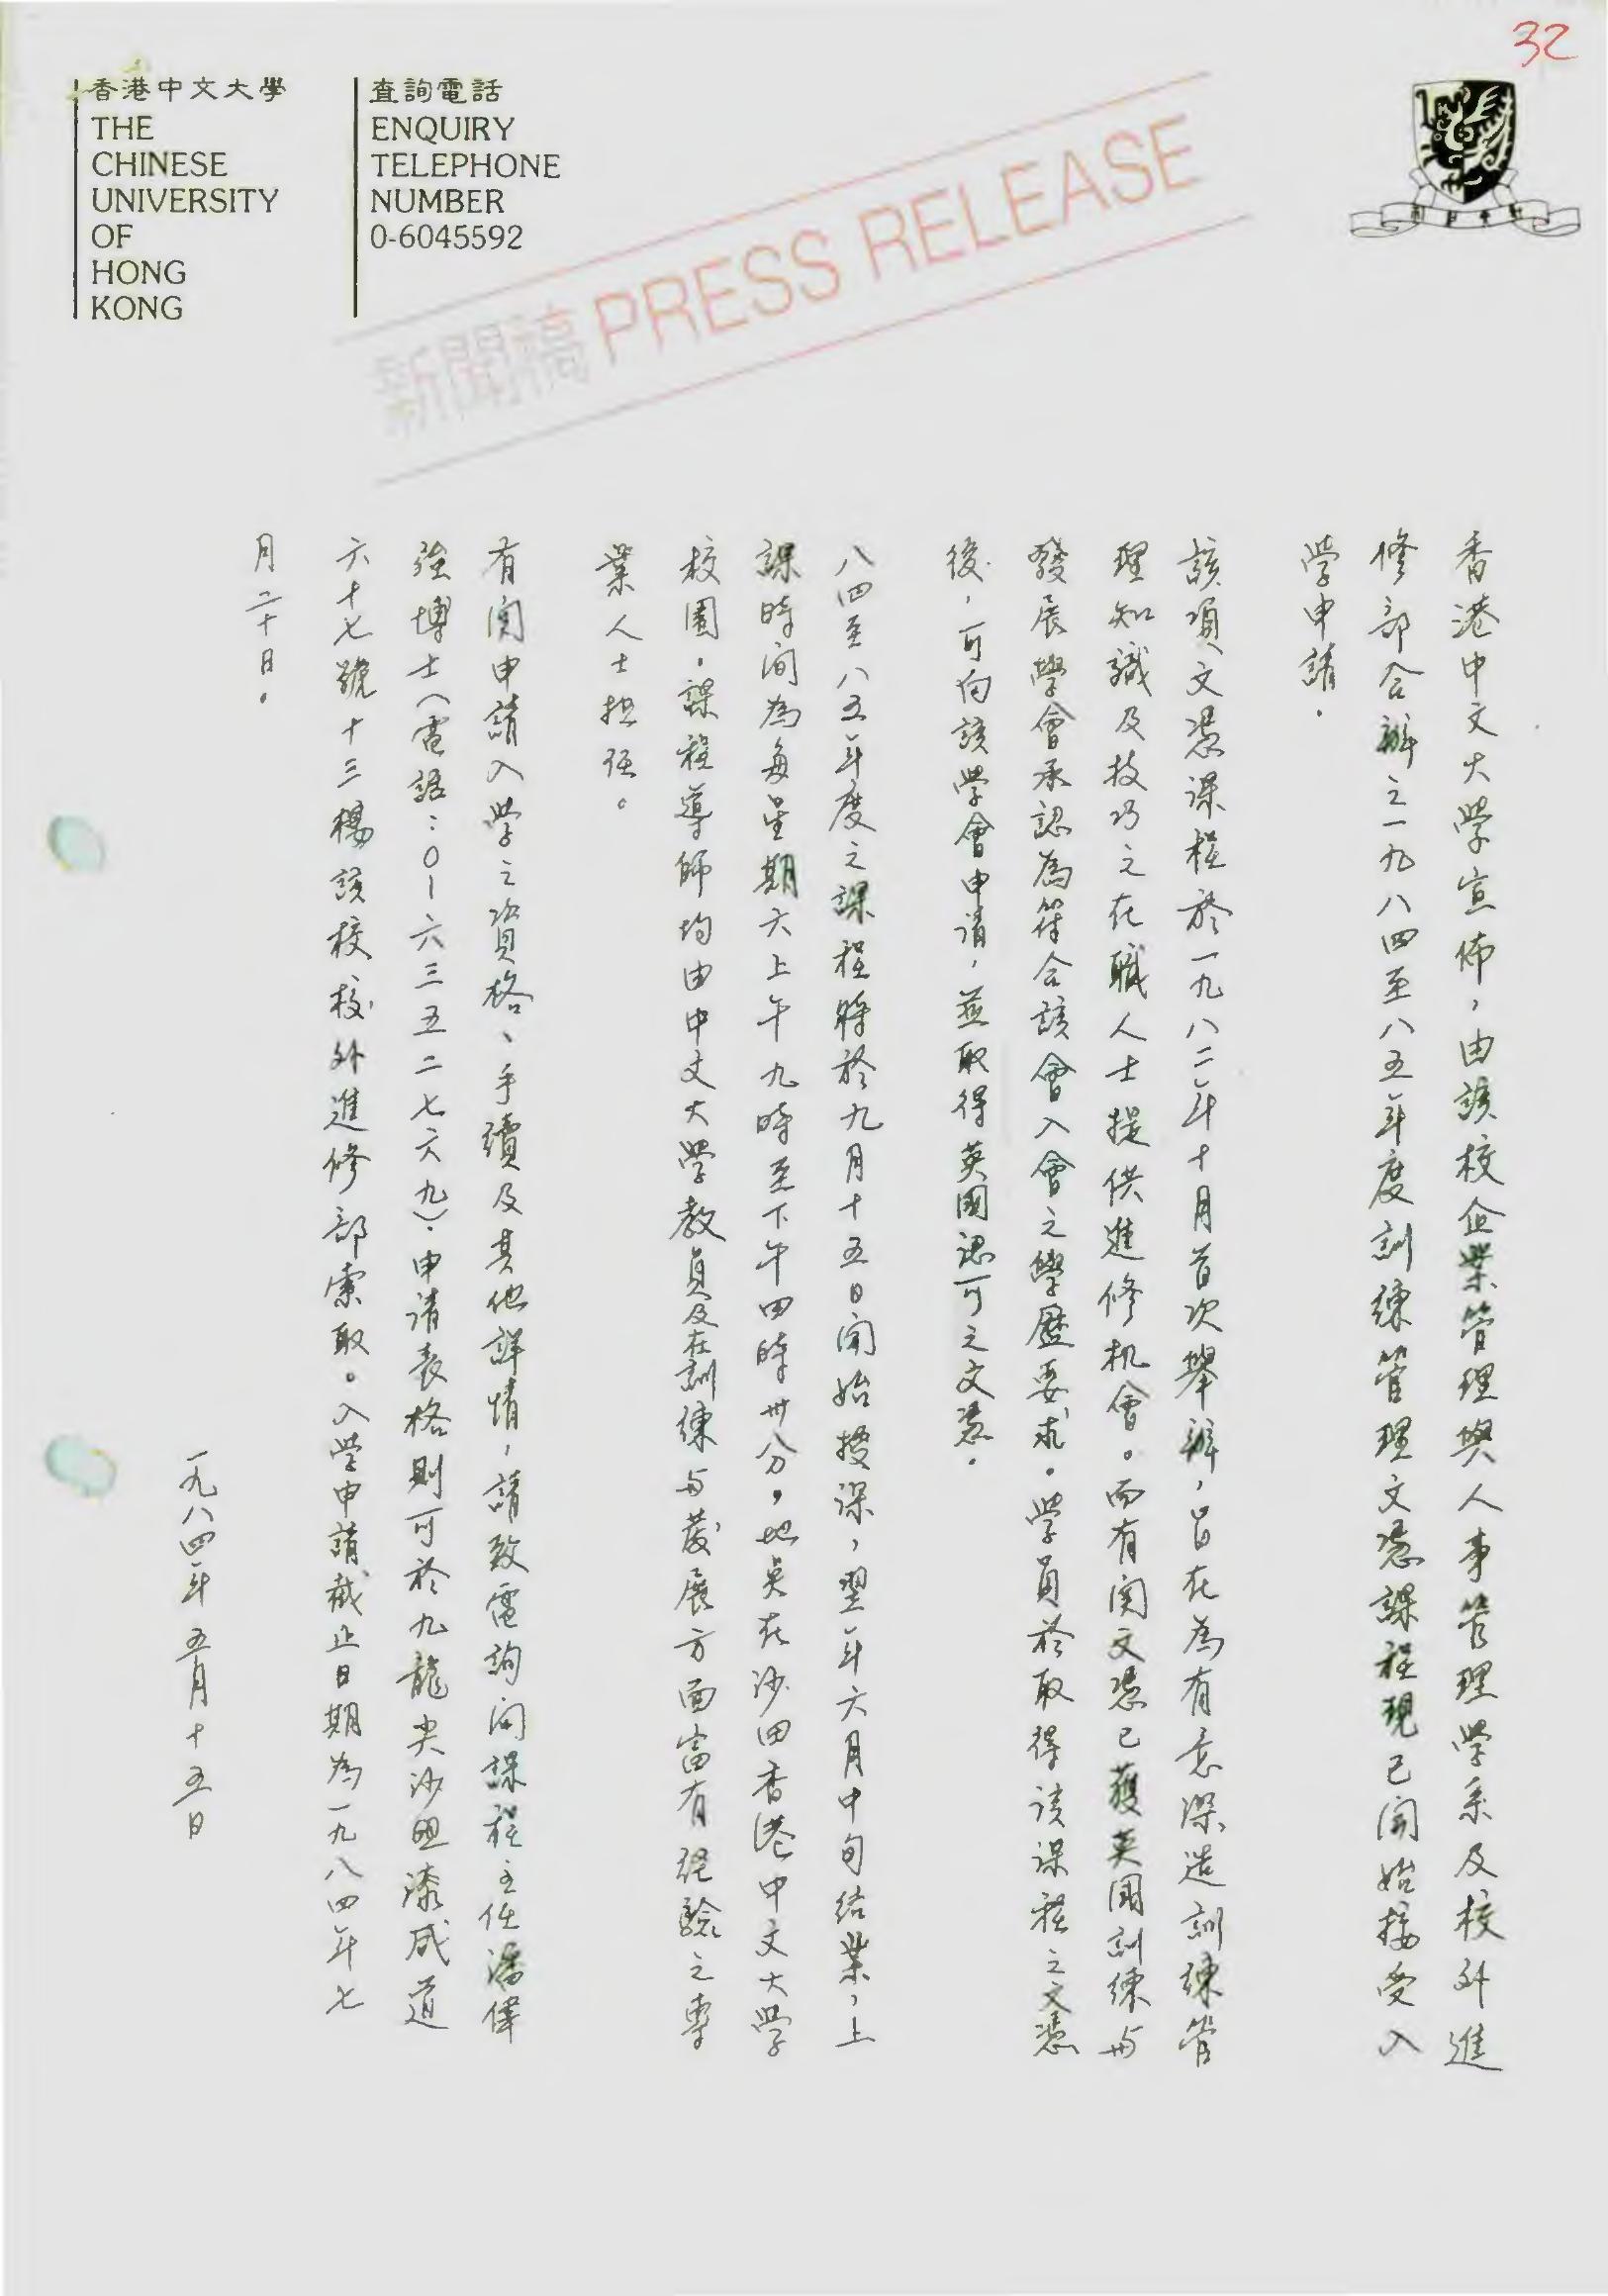 32
香港中文大學
THE
CHINESE
UNIVERSITY
OF
HONG
KONG
查詢電話
ENQUIRY
TELEPHONE
NUMBER
0-6045592
新聞稿 PRESS RELEASE
香港中文大學宣佈，由該校企業管理與人事管理學系及校外進
修部合辦之一九八四至八五年度訓練管理文憑課程現已開始接受入
学申請。
該項文憑課程於一九八二年十月首次舉辦，旨在為有意深造訓練管
理知識及技巧之在職人士提供進修机會。而有関文憑已獲英國訓練与
發展學會承認為符合該會入會之學歷要求。学員於取得该课程之文憑
後，可向該学會申请，並取得英國認可之文憑。
八四至八五年度之課程將於九月十五日開始授课，翌年六月中旬结業，上
課時间為每星期六上午九時至下午四時卅分，地点在沙田香港中文大学
校園。課程導師均由中文大学教員及在訓練与發展方面富有经驗之專
業人士担任。
有関申請入学之資格、手續及其他詳情，請致電詢问課程主任潘偉
強博士（電話：０－六三五二七六九）。申请表格則可於九龍尖沙咀漆咸道
六十七號十三樓該校校外進修部索取。入学申請截止日期為一九八四年七
月二十日。
一九八四年五月十五日